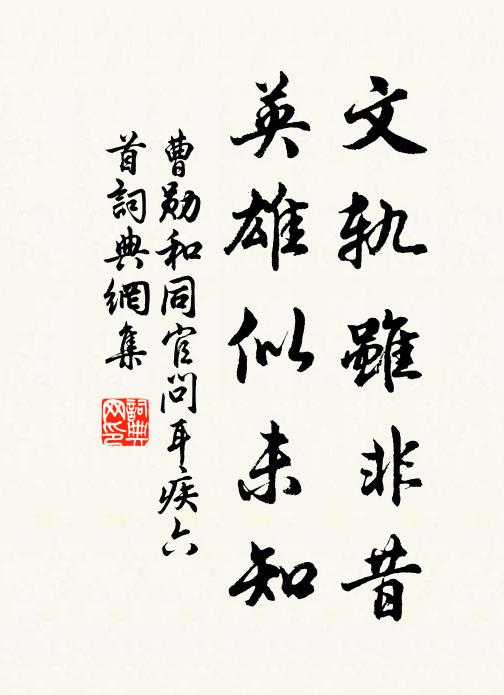 文軌雖非昔
英雄似未知
曹勛和同官問耳疾六
首詞典網集
詞典
网印